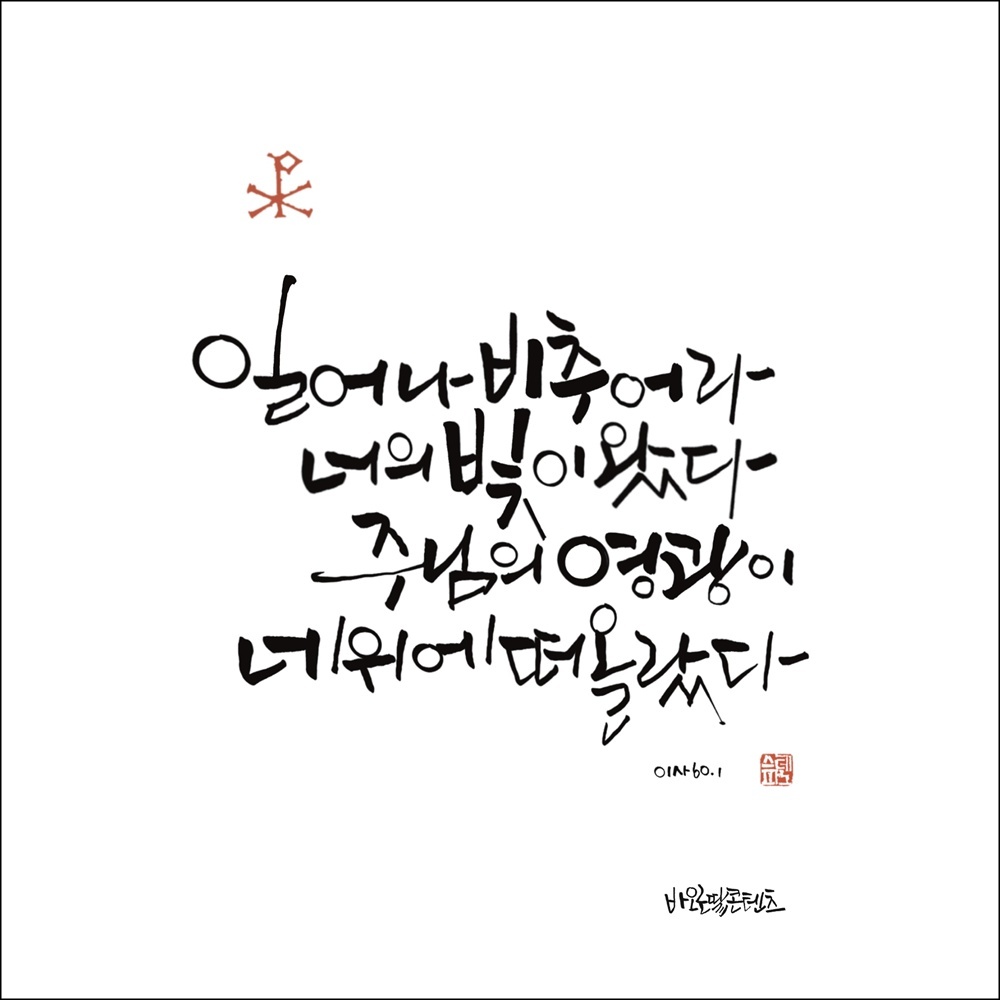 일어나 비추어라
너의 빛이 왔다
주님의 영광이
네 위에 떠올랐다
이사 60.1
바오로딸콘텐츠